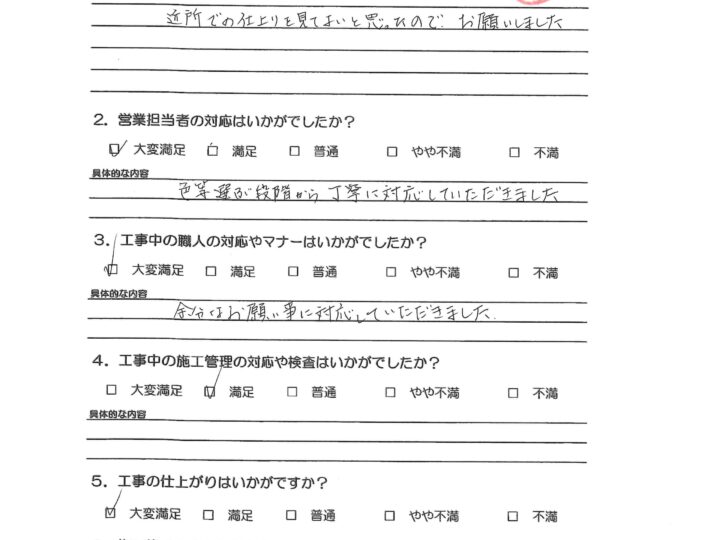 近所での仕上りを見てよいと思ったので、お願いしました
2. 営業担当者の対応はいかがでしたか？
☑ 大変満足 □ 満足 □ 普通 □ やや不満 □ 不満
具体的な内容
色等選ぶ段階から丁寧に対応していただきました
3. 工事中の職人の対応やマナーはいかがでしたか？
☑ 大変満足 □ 満足 □ 普通 □ やや不満 □ 不満
具体的な内容
余分なお願い事に対応していただきました.
4. 工事中の施工管理の対応や検査はいかがでしたか？
□ 大変満足 ☑ 満足 □ 普通 □ やや不満 □ 不満
具体的な内容
5. 工事の仕上がりはいかがですか？
☑ 大変満足 □ 満足 □ 普通 □ やや不満 □ 不満